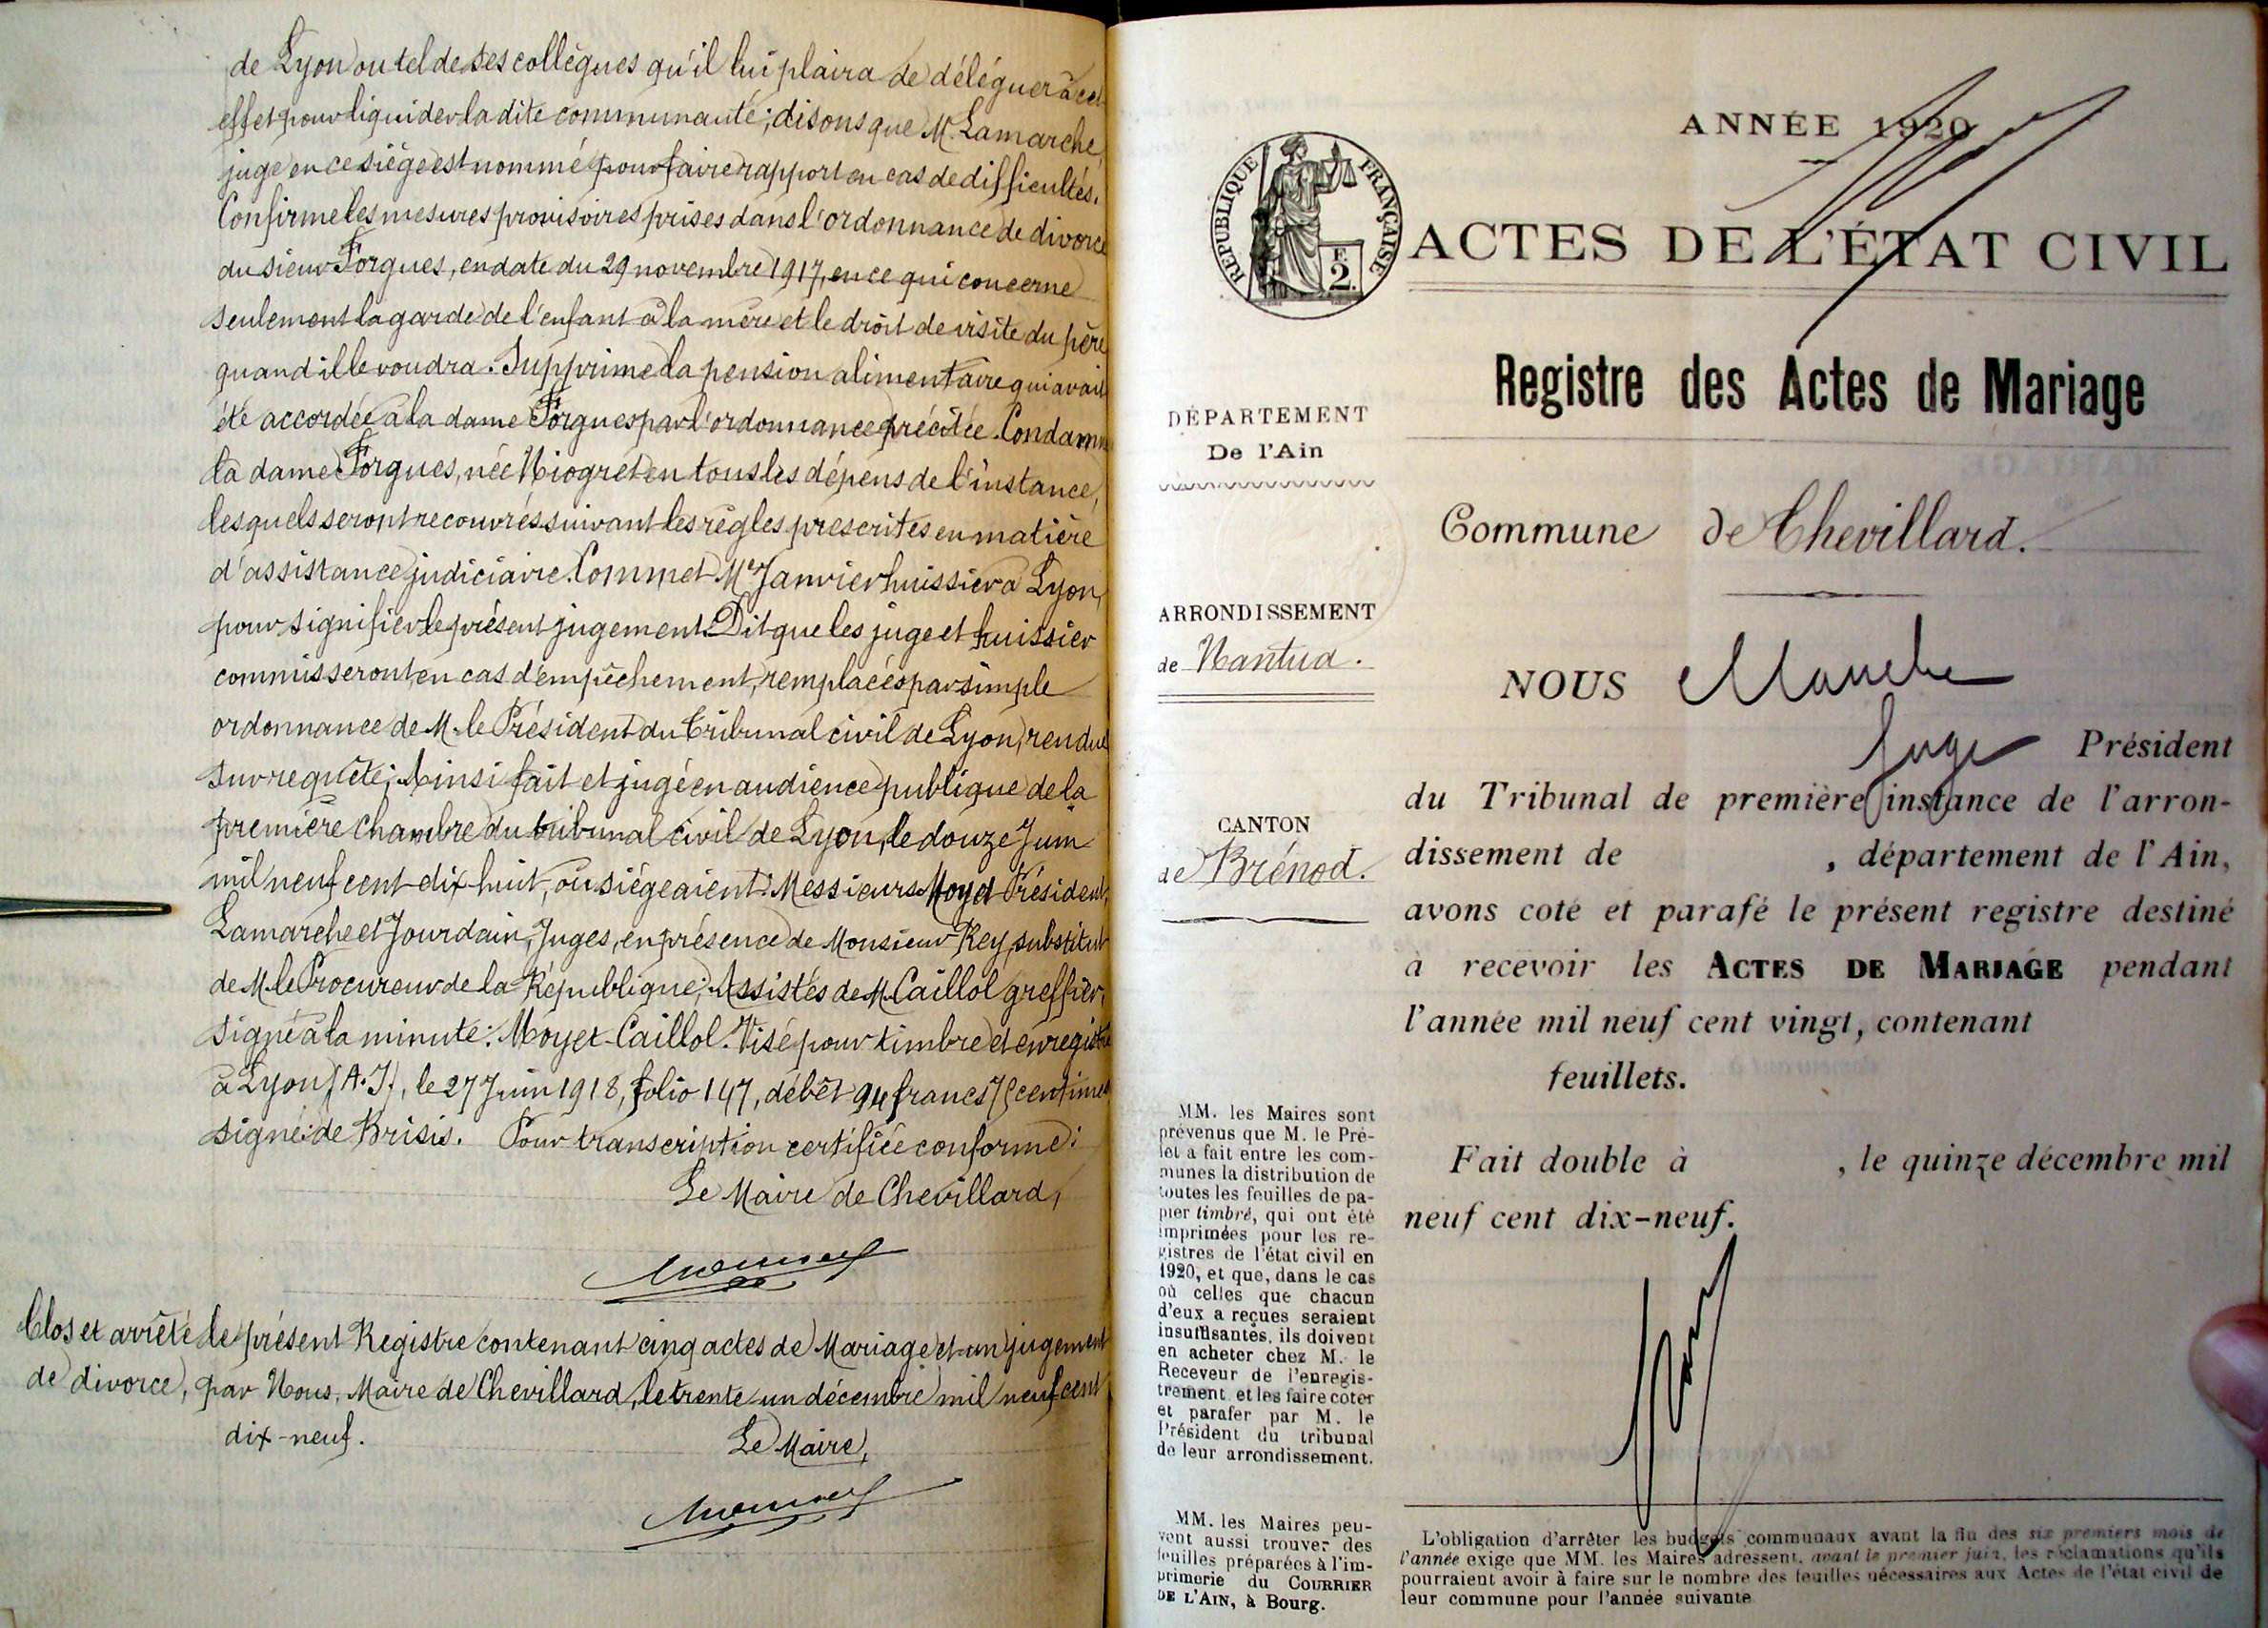 de Lyon ou tel de ses collègues qu'il lui plaira de déléguer à cet
effet pour liquider la dite communauté; disons que M. Lamarche,
juge en ce siège est nommé pour faire rapport en cas de difficultés.
Confirme les mesures provisoires prises dans l'ordonnance de divorce
du sieur Forgues, en date du 29 novembre 1917, en ce qui concerne
seulement la garde de l'enfant à la mère et le droit de visite du père
quand il le voudra. Supprime la pension alimentaire qui avait
été accordée à la dame Forgues par l'ordonnance précitée. Condamne
la dame Forgues, née Niogret en tous les dépens de l'instance,
lesquels seront recouvrés suivant les règles prescrites en matière
d'assistance judiciaire. Commet Me Janvier huissier à Lyon,
pour signifier le présent jugement. Dit que les juge et huissier
commis seront, en cas d'empêchement, remplacés par simple
ordonnance de M. le Président du tribunal civil de Lyon, rendue
sur requête; Ainsi fait et jugé en audience publique de la
première chambre du tribunal civil de Lyon, le douze Juin
mil neuf cent dix huit, où siégeaient: Messieurs Moyet Président,
Lamarche et Jourdain, Juges, en présence de Monsieur Rey, substitut
de M. le Procureur de la République; Assistés de M. Caillol greffier,
signé à la minute: Moyet-Caillol. Visé pour timbre et enregistré
à Lyon (A.J), le 27 Juin 1918, folio 147, débêt 94 francs centimes
signé: de Brisis. Pour transcription certifiée conforme:
Le Maire de Chevillard,
Clos et arrêté le présent Registre contenant cinq actes de Mariage et un jugement
de divorce, par Nous, Maire de Chevillard, le trente-un décembre mil neuf cent
dix-neuf.
Le Maire,
ANNÉE 1920
RÉPUBLIQUE FRANÇAISE
F
2.
ACTES DE L'ÉTAT CIVIL
Registre des Actes de Mariage
DÉPARTEMENT
De l'Ain
Commune de Chevillard.
ARRONDISSEMENT
de Nantua.
NOUS
Juge Président
du Tribunal de première instance de l'arron-
dissement de , département de l'Ain,
avons coté et parafé le présent registre destiné
à recevoir les ACTES DE MARIAGE pendant
l'année mil neuf cent vingt, contenant
feuillets.
Fait double à , le quinze décembre mil
neuf cent dix-neuf.
CANTON
de Brénod.
MM. les Maires sont
prévenus que M. le Pré-
fet a fait entre les com-
munes la distribution de
toutes les feuilles de pa-
pier timbré, qui ont été
imprimées pour les re-
gistres de l'état civil en
1920, et que, dans le cas
où celles que chacun
d'eux a reçues seraient
insuffisantes, ils doivent
en acheter chez M. le
Receveur de l'enregis-
trement et les faire coter
et parafer par M. le
Président du tribunal
de leur arrondissement.
MM. les Maires peu-
vent aussi trouver des
feuilles préparées à l'im-
primerie du COURRIER
DE L'AIN, à Bourg.
L'obligation d'arrêter les budgets communaux avant la fin des six premiers mois de
l'année exige que MM. les Maires adressent, avant le premier juin, les réclamations qu'ils
pourraient avoir à faire sur le nombre des feuilles nécessaires aux Actes de l'état civil de
leur commune pour l'année suivante